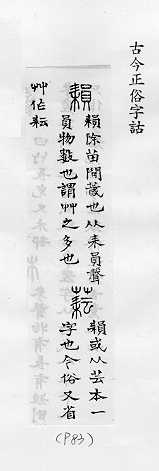 古今正俗字詁
𦔐除苗間薉也从耒員聲
員物數也謂艸之多也
𦔐或从芸本一
字也今俗又省
艸作耘
(P83)